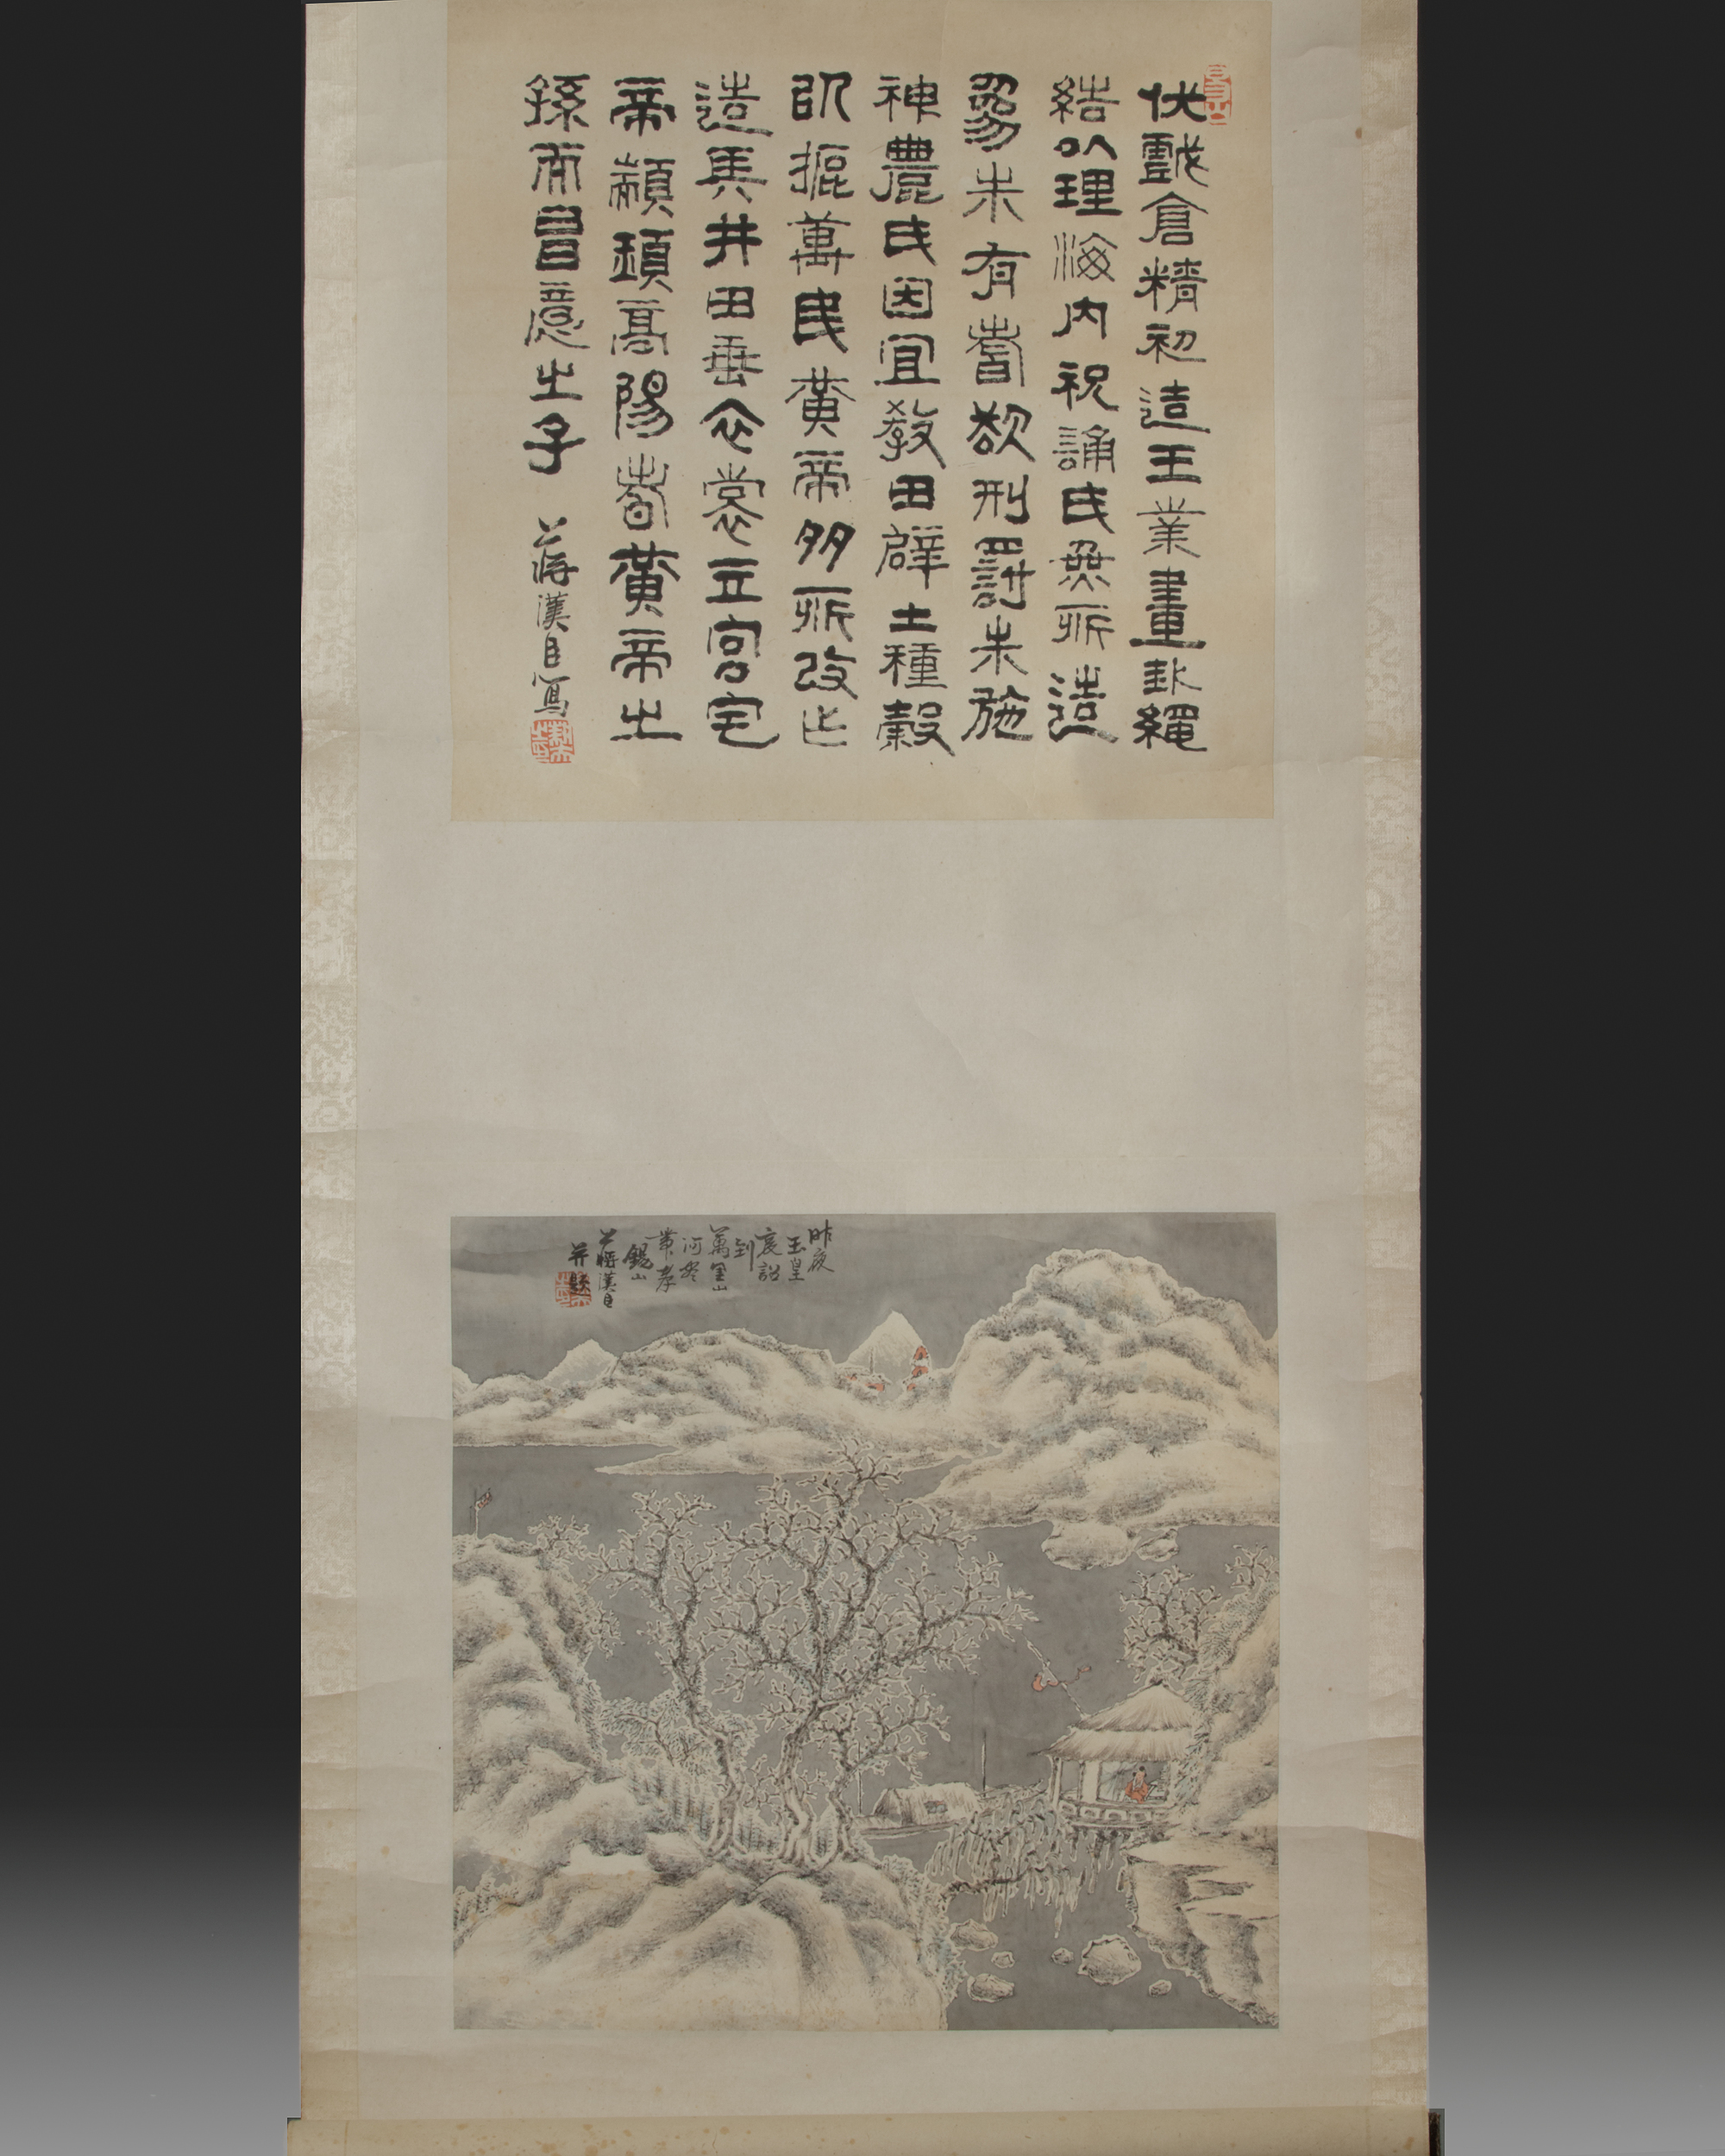 伏戲倉精初造王業畫卦繩
結以理海内祝誦氏無所造
為未有耆欲刑罰未施
神農氏因宜教田辟土種穀
以振萬民黃帝多所改作
造兵井田垂衣裳立宮宅
帝顓頊高陽者黃帝之
孫而昌意之子 蔣漢寫
昨夜
玉皇
哀詔
到
萬里山
河尽
帶孝
錫山
蔣漢
并題